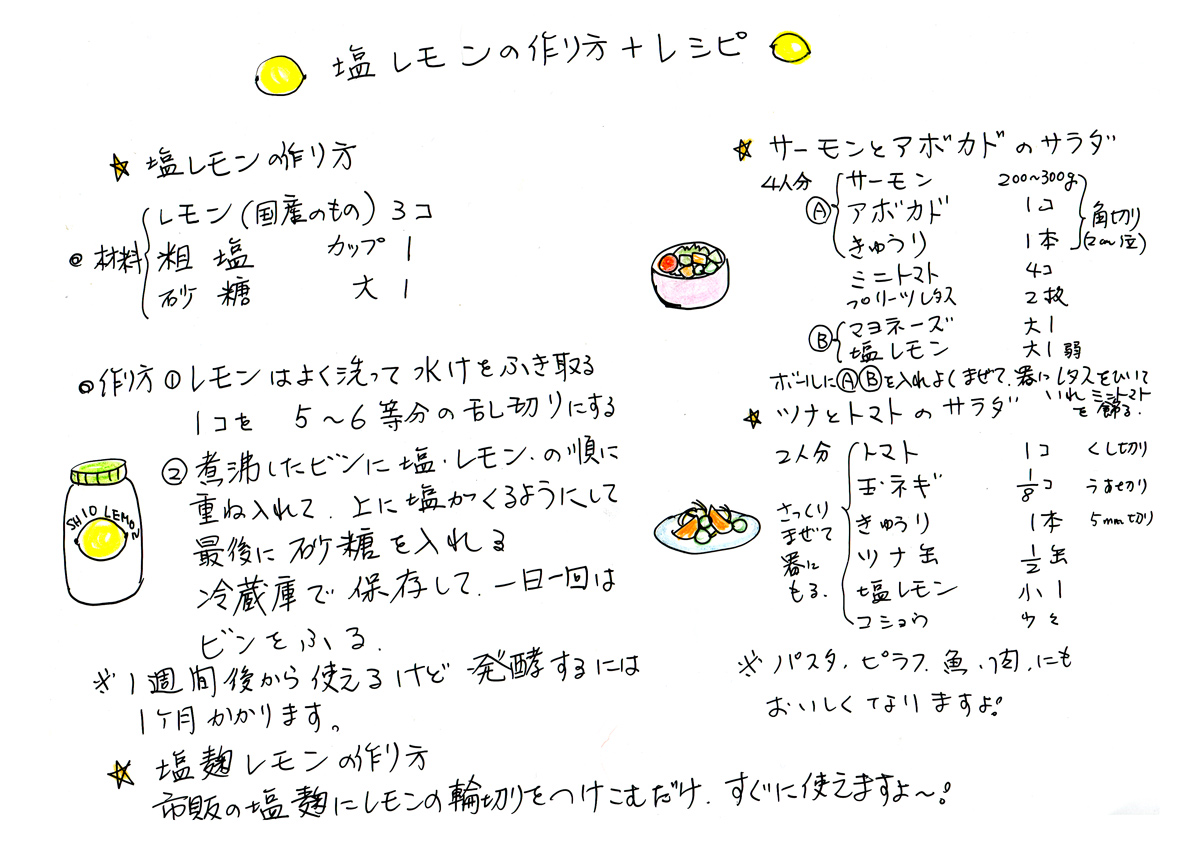 塩レモンの作り方+レシピ
☆ 塩レモンの作り方
◎ 材料
レモン(国産のもの) 3コ
粗塩 カップ 1
砂糖 大 1
◎ 作り方 ① レモンはよく洗って水けをふき取る
1コを 5〜6等分の乱切りにする
② 煮沸したビンに塩・レモン・の順に
重ね入れて、上に塩がくるようにして
最後に砂糖を入れる
冷蔵庫で保存して、一日一回は
ビンをふる。
SHIO LEMON
※1週間後から使えるけど発酵するには
1ヶ月かかります。
☆ 塩麹レモンの作り方
市販の塩麹にレモンの輪切りをつけこむだけ、すぐに使えますよ〜!
☆ サーモンとアボカドのサラダ
4人分
Ⓐ
サーモン 200〜300g
アボカド 1コ
きゅうり 1本
角切り
(2cm位)
ミニトマト 4コ
プリーツレタス 2枚
Ⓑ
マヨネーズ 大1
塩レモン 大1弱
ボールにⒶⒷを入れよくまぜて、器にレタスをひいて
いれミニトマト
を飾る.
☆ ツナとトマトのサラダ
2人分
トマト 1コ くし切り
玉ネギ 1/8コ うす切り
きゅうり 1本 5mm切り
ツナ缶 1/2缶
塩レモン 小1
コショウ 少々
さっくり
まぜて
器に
もる.
※ パスタ、ピラフ、魚、肉、にも
おいしくなりますよ!